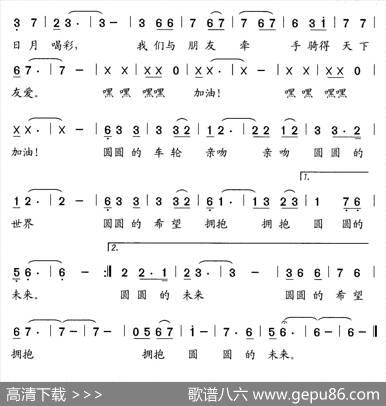 3 7 | 2 3 · | 3 - | 3 6 6 | 7 6 7 | 7 6 7 | 6 3 i | 7 7
日 月 喝彩， 我 们 与 朋 友 牵 手 骑 得 天 下
6 7 · | 7 - | X X | X X 0 | X X · | X - | X X | X X 0
友爱。 嘿 嘿 嘿嘿 加油！ 嘿 嘿 嘿嘿
X X · | X - | 6 3 3 | 3 3 2 | 1 2 · | 2 2 1 2 | 3 3 | 3 3 · 2
加油！ 圆 圆 的 车 轮 亲吻 亲 吻 圆 圆 的
1.
1 2 · | 2 - | 6 3 3 | 3 3 2 | 6 1 · | 1 3 2 3 | 1 | 7 6 7 6
世界 圆 圆 的 希 望 拥抱 拥 抱 圆 圆的
2.
5 6 · | 6 - :|| 2 2 | 2 2 · 1 | 2 3 · | 3 - | 3 6 6 | 7 6
未来。 圆 圆 的 未来 圆 圆 的 希 望
6 7 · | 7 - | 7 - | 0 5 6 7 | i - | 7 · 7 | 5 6 · | 6 - | 6 - ||
拥抱 拥抱 圆 圆 的 未来。
高清下载 >>>
歌谱八六 www.gepu86.com